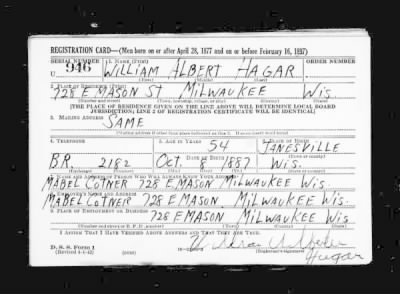 REGISTRATION CARD—(Men born on or after April 28, 1877 and on or before February 16, 1897)
SERIAL NUMBER 1. NAME (Print) ORDER NUMBER
U 946 WILLIAM ALBERT HAGAR
2. PLACE OF RESIDENCE (Print)
728 E MASON ST MILWAUKEE WIS.
(Number and street) (Town, township, village, or city) (County) (State)
[THE PLACE OF RESIDENCE GIVEN ON THE LINE ABOVE WILL DETERMINE LOCAL BOARD
JURISDICTION; LINE 2 OF REGISTRATION CERTIFICATE WILL BE IDENTICAL]
3. MAILING ADDRESS
SAME
[Mailing address if other than place indicated on line 2. If same insert word same]
4. TELEPHONE 5. AGE IN YEARS 6. PLACE OF BIRTH
54 JANESVILLE
DATE OF BIRTH (Town or county)
BR. 2182 OCT. 8 1887 WIS.
(Exchange) (Number) (Mo.) (Day) (Yr.) (State or country)
7. NAME AND ADDRESS OF PERSON WHO WILL ALWAYS KNOW YOUR ADDRESS
MABEL COTNER 728 E MASON MILWAUKEE WIS
8. EMPLOYER'S NAME AND ADDRESS
MABEL COTNER 728 E MASON MILWAUKEE WIS.
9. PLACE OF EMPLOYMENT OR BUSINESS
728 E MASON MILWAUKEE WIS
(Number and street or R. F. D. number) (Town) (County) (State)
I AFFIRM THAT I HAVE VERIFIED ABOVE ANSWERS AND THAT THEY ARE TRUE.
D. S. S. Form 1
(Revised 4-1-42) (over) (Registrant's signature)
William Albert
Hagar